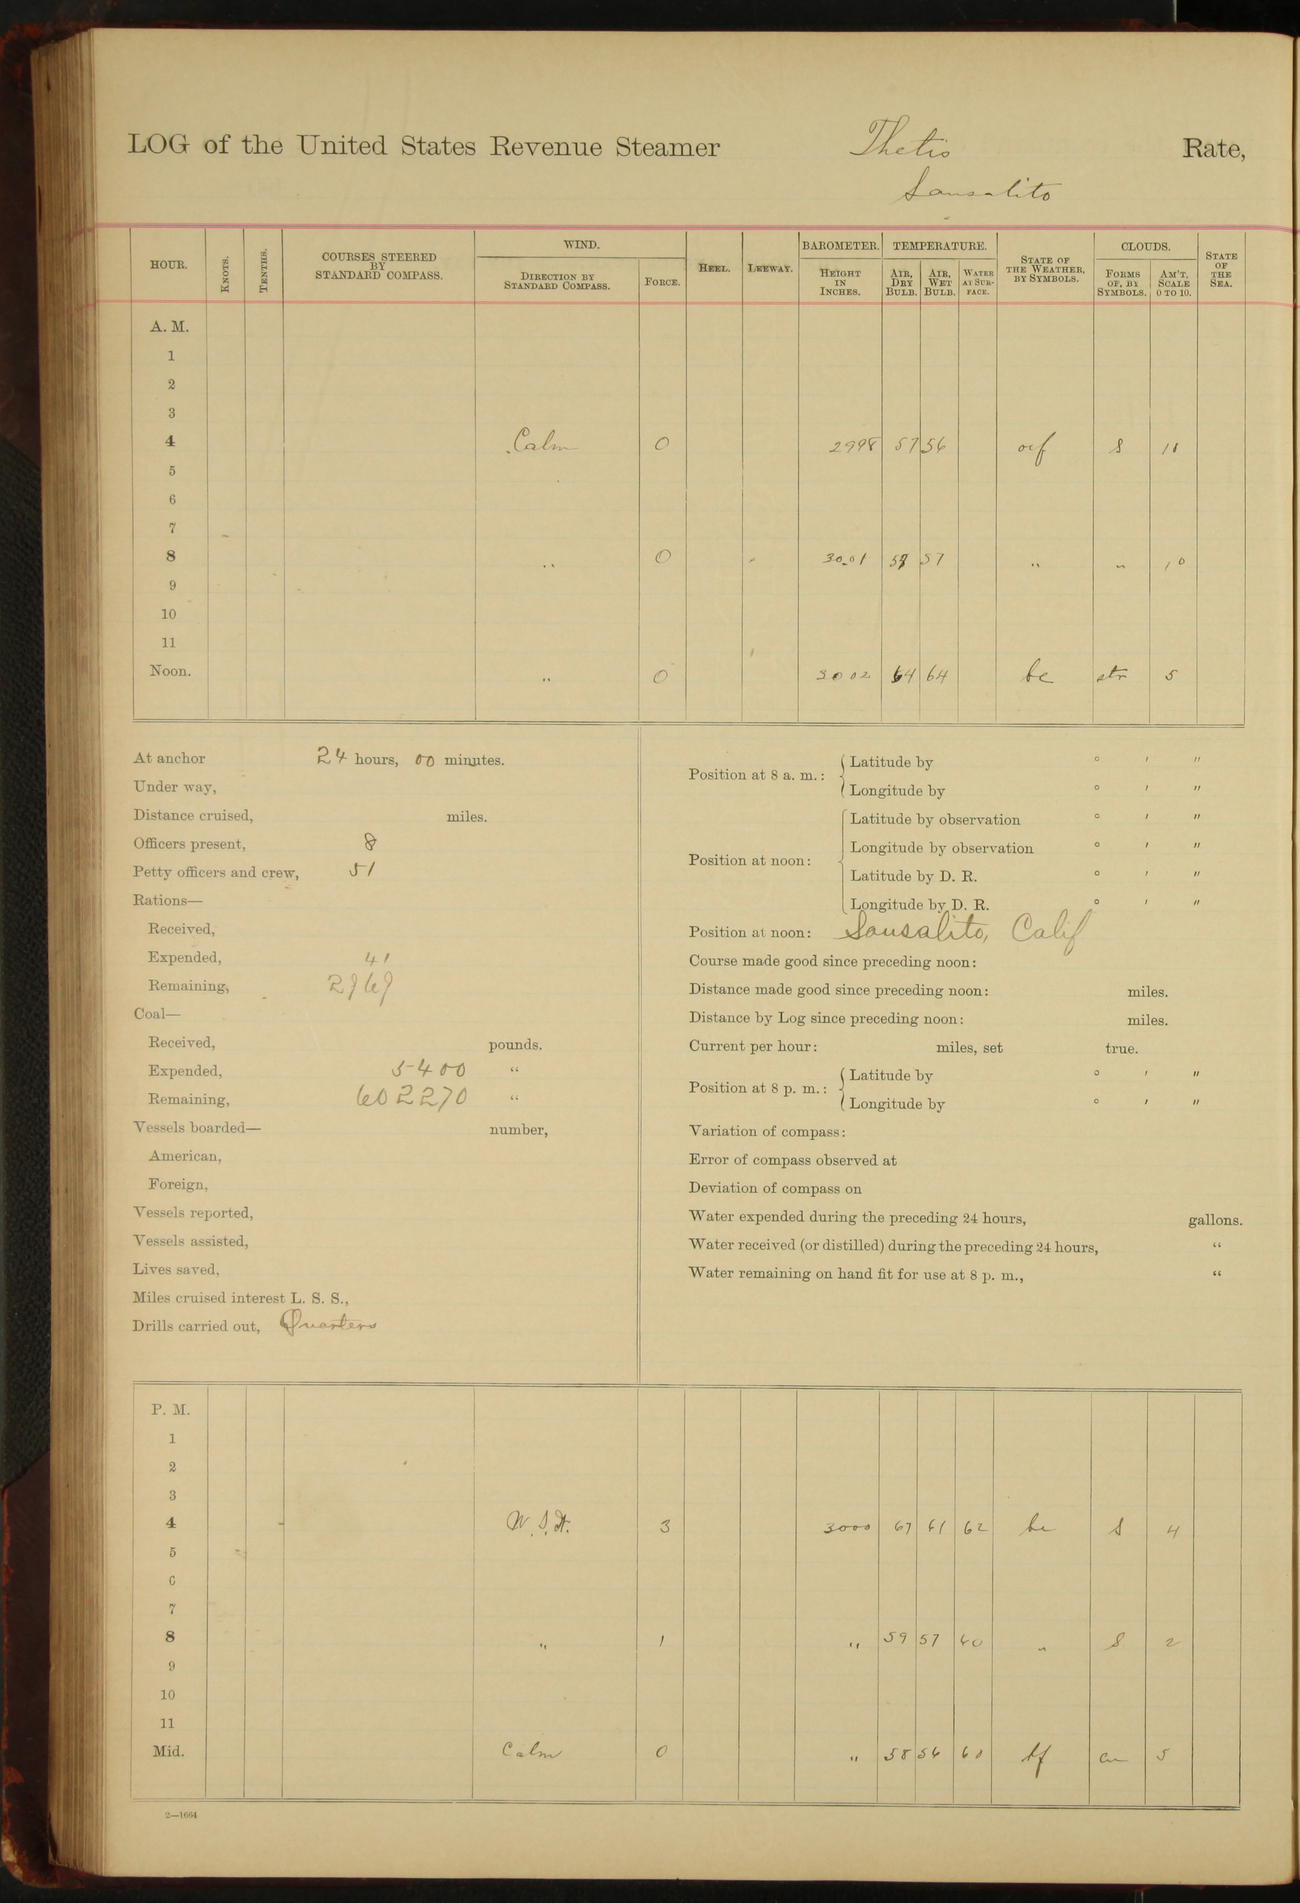 LOG of the United States Revenue Steamer Thetis Rate,
Sausalito
HOUR. KNOTS. TENTHS. COURSES STEERED BY STANDARD COMPASS. WIND. DIRECTION BY STANDARD COMPASS. FORCE. HEEL. LEEWAY. BAROMETER. HEIGHT IN INCHES. TEMPERATURE. AIR, DRY BULB. AIR, WET BULB. WATER AT SURFACE. STATE OF THE WEATHER, BY SYMBOLS. CLOUDS. FORMS OF, BY SYMBOLS. AM'T, SCALE 0 TO 10. STATE OF THE SEA.
A. M.
1
2
3
4 Calm 0 2998 57 56 ocf S 10
5
6
7
8 " 0 30.01 58 57 " " 10
9
10
11
Noon. " 0 3002 64 64 bc str 5
At anchor 24 hours, 00 minutes.
Under way,
Distance cruised, miles.
Officers present, 8
Petty officers and crew, 51
Rations—
Received,
Expended, 41
Remaining, 2969
Coal—
Received, pounds.
Expended, 5400 "
Remaining, 602270 "
Vessels boarded— number,
American,
Foreign,
Vessels reported,
Vessels assisted,
Lives saved,
Miles cruised interest L. S. S.,
Drills carried out, Quarters
Position at 8 a. m.: Latitude by ° ′ ″
Longitude by ° ′ ″
Position at noon: Latitude by observation ° ′ ″
Longitude by observation ° ′ ″
Latitude by D. R. ° ′ ″
Longitude by D. R. ° ′ ″
Position at noon: Sausalito, Calif
Course made good since preceding noon:
Distance made good since preceding noon: miles.
Distance by Log since preceding noon: miles.
Current per hour: miles, set true.
Position at 8 p. m.: Latitude by ° ′ ″
Longitude by ° ′ ″
Variation of compass:
Error of compass observed at
Deviation of compass on
Water expended during the preceding 24 hours, gallons.
Water received (or distilled) during the preceding 24 hours, "
Water remaining on hand fit for use at 8 p. m., "
P. M.
1
2
3
4 W.S.W. 3 3000 67 61 62 bc S 4
5
6
7
8 " 1 " 59 57 60 " S 2
9
10
11
Mid. Calm 0 " 58 56 60 bf cu 5
2—1664